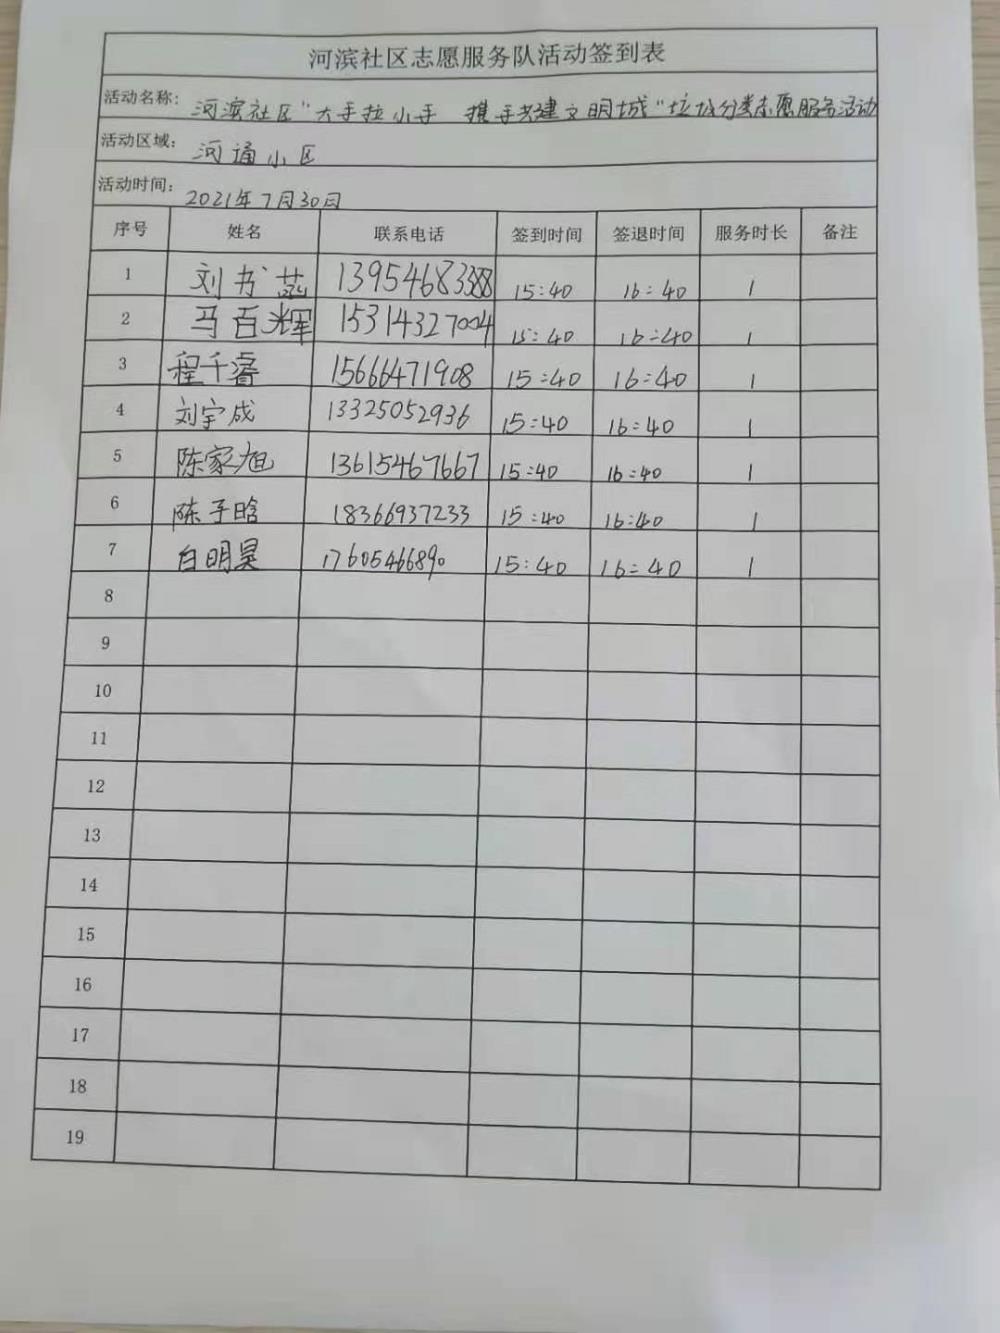 河滨社区志愿服务队活动签到表
活动名称: 河滨社区"大手拉小手 携手共建文明城"垃圾分类志愿服务活动
活动区域: 河通小区
活动时间: 2021年7月30日
序号 姓名 联系电话 签到时间 签退时间 服务时长 备注
1 刘书菡 13954683388 15:40 16:40 1
2 马百辉 15314327004 15:40 16:40 1
3 程千睿 15666471908 15:40 16:40 1
4 刘宇成 13325052936 15:40 16:40 1
5 陈家旭 13615467667 15:40 16:40 1
6 陈子晗 18366937233 15:40 16:40 1
7 白明昊 17605466890 15:40 16:40 1
8
9
10
11
12
13
14
15
16
17
18
19